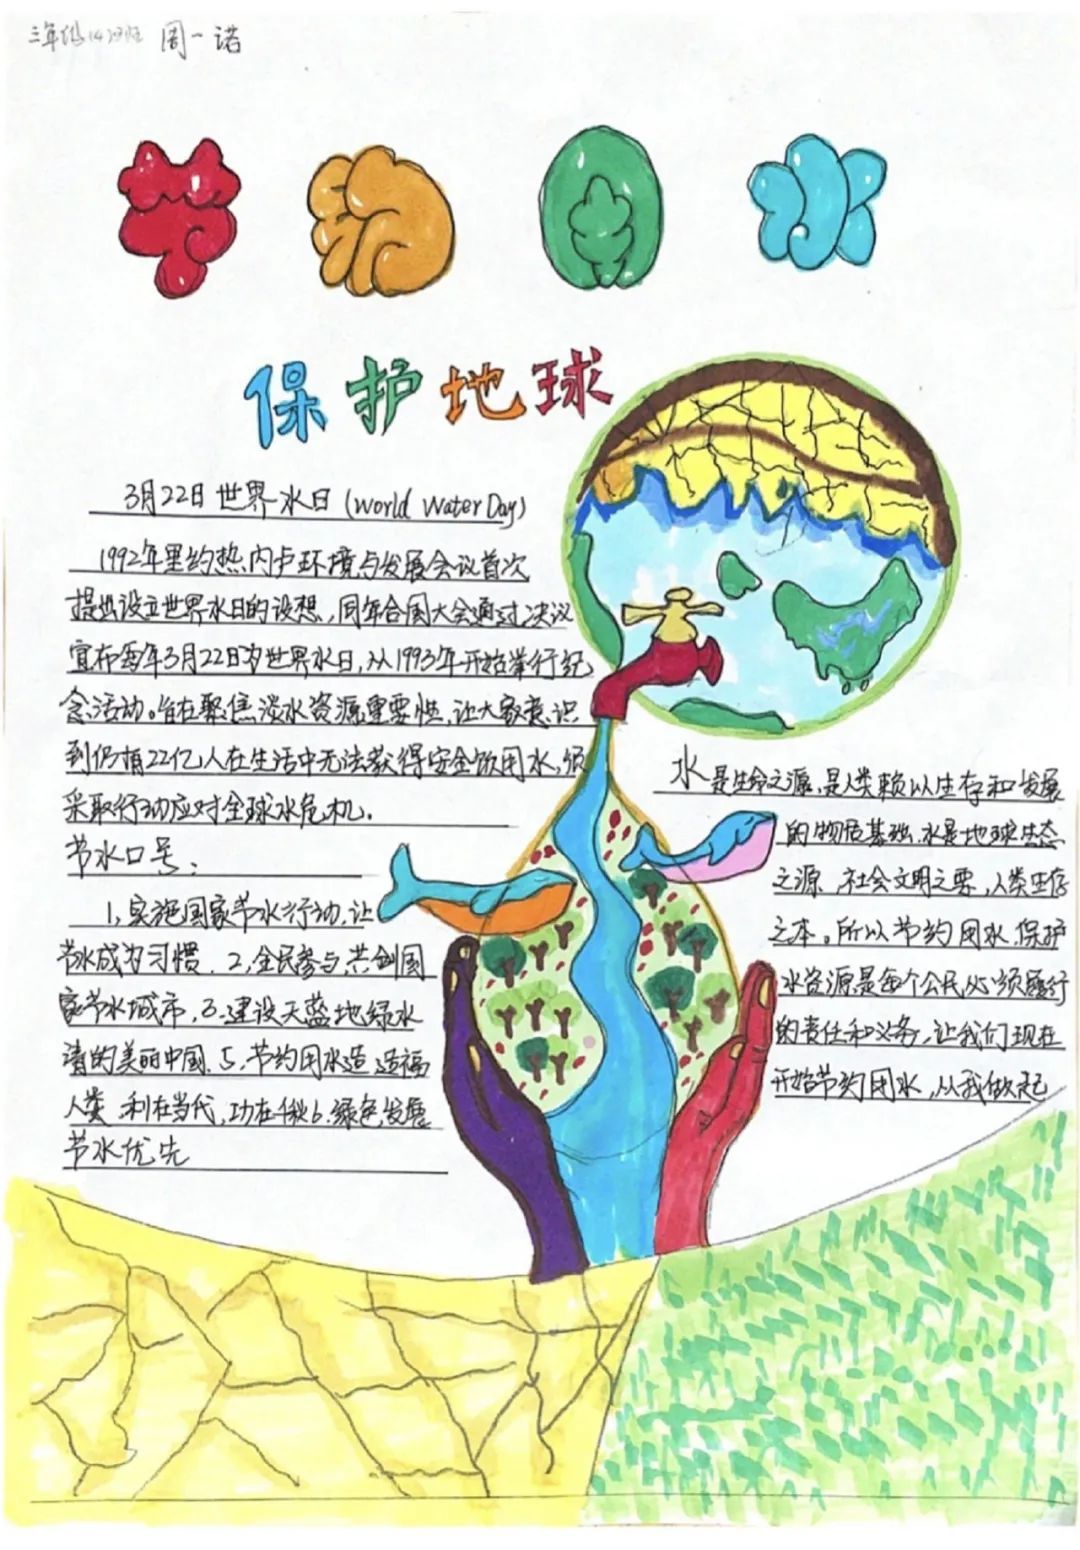 三年级14班 周一诺
节约用水
保护地球
3月22日世界水日(World Water Day)
1992年里约热内卢环境与发展会议首次
提出设立世界水日的设想,同年合国大会通过决议
宣布每年3月22日为世界水日,从1993年开始举行纪
念活动。旨在聚焦淡水资源重要性,让大家意识
到仍有22亿人在生活中无法获得安全饮用水,须
采取行动应对全球水危机.
节水口号:
1,实施国家节水行动,让
节水成为习惯.2,全民参与,共创国
家节水城市,3.建设天蓝地绿水
清的美丽中国.5,节约用水造造福
人类 利在当代,功在千秋6.绿色发展
节水优先
水是生命之源,是人类赖以生存和发展
的物质基础.水是地球生态
之源,社会文明之要,人类生存
之本。所以节约用水,保护
水资源,是每个公民必须履行
的责任和义务,让我们现在
开始节约用水,从我做起